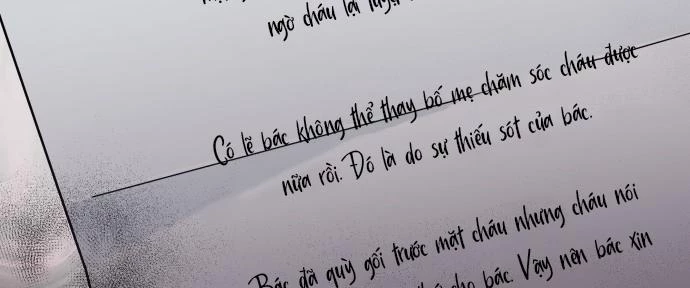 ngờ cháu lại
Có lẽ bác không thể thay bố mẹ chăm sóc cháu được
nữa rồi. Đó là do sự thiếu sót của bác.
Bác đã quỳ gối trước mặt cháu nhưng cháu nói
cho bác. Vậy nên bác xin